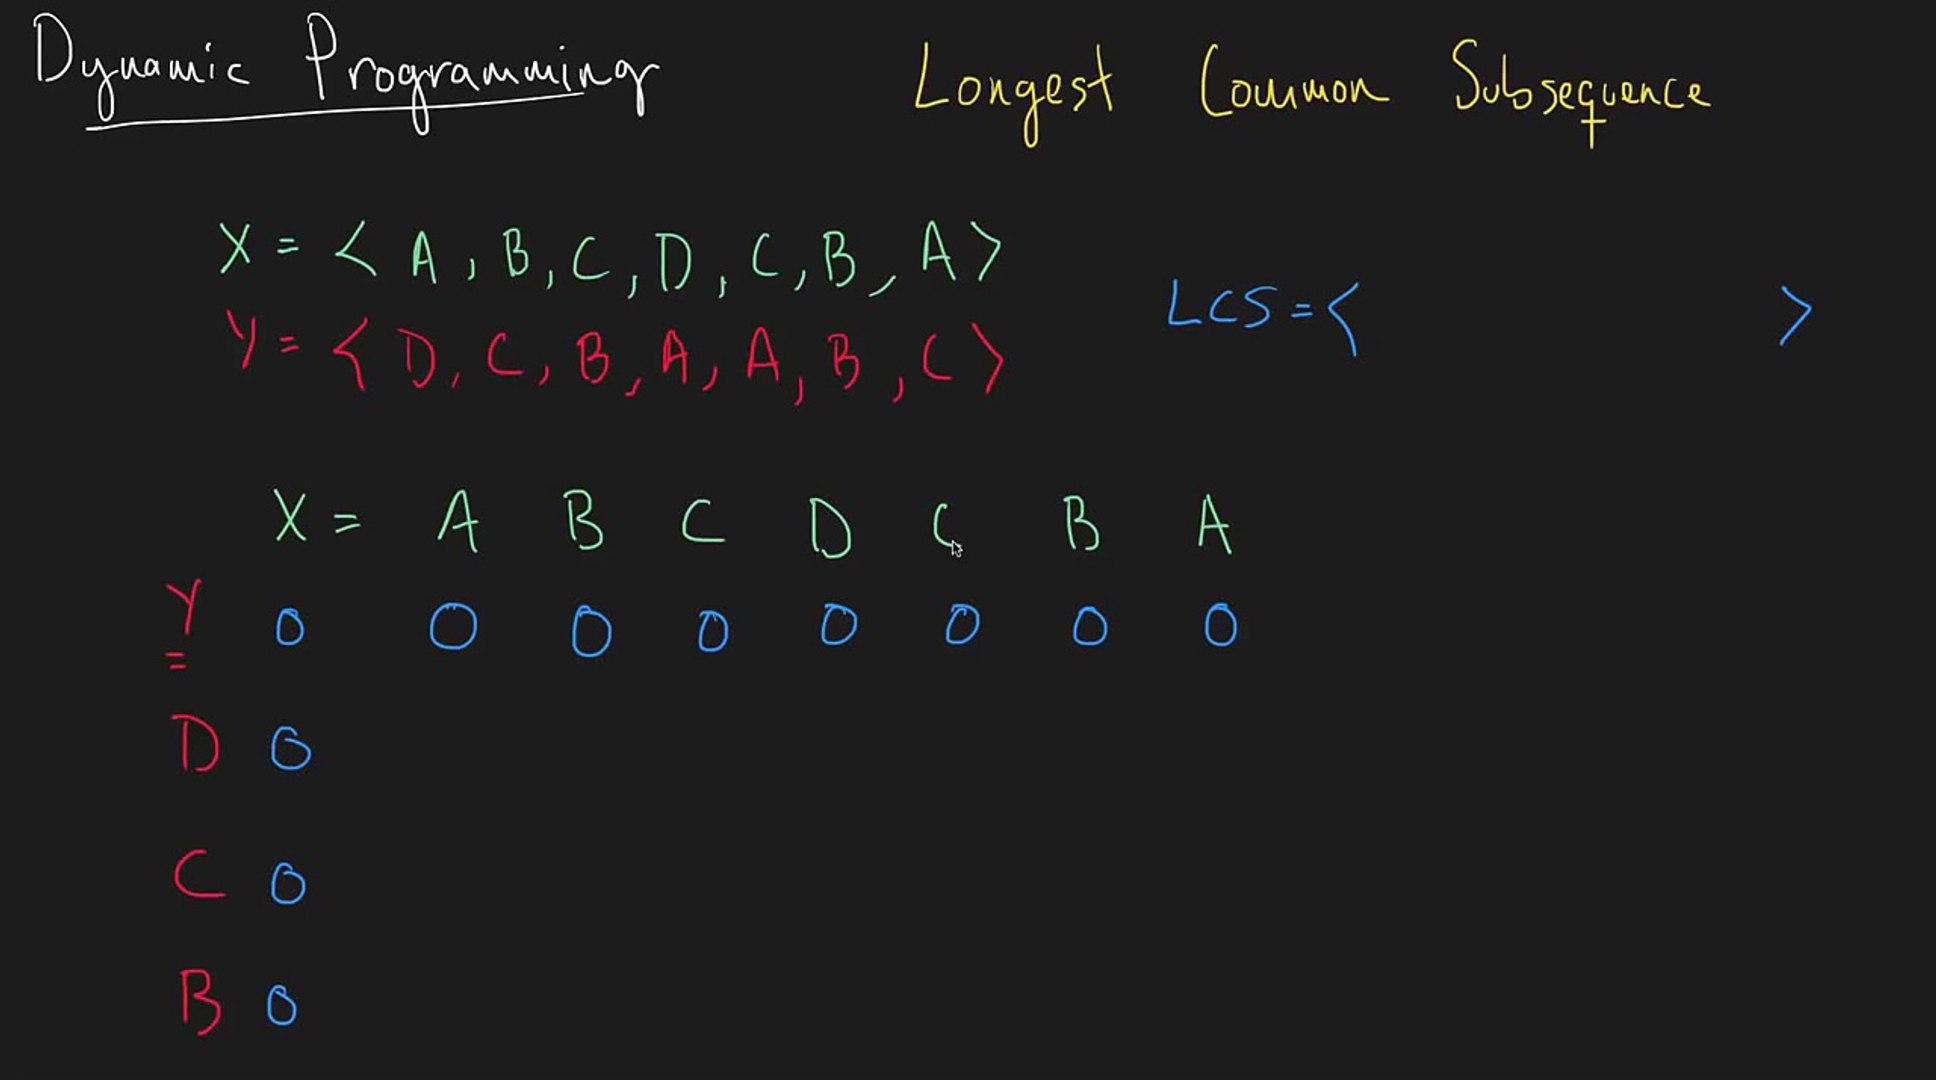 Dynamic Programming
Longest Common Subsequence
X = < A, B, C, D, C, B, A >
Y = < D, C, B, A, A, B, C >
LCS = < >
X = A B C D C B A
Y = 0 0 0 0 0 0 0 0
D 0
C 0
B 0